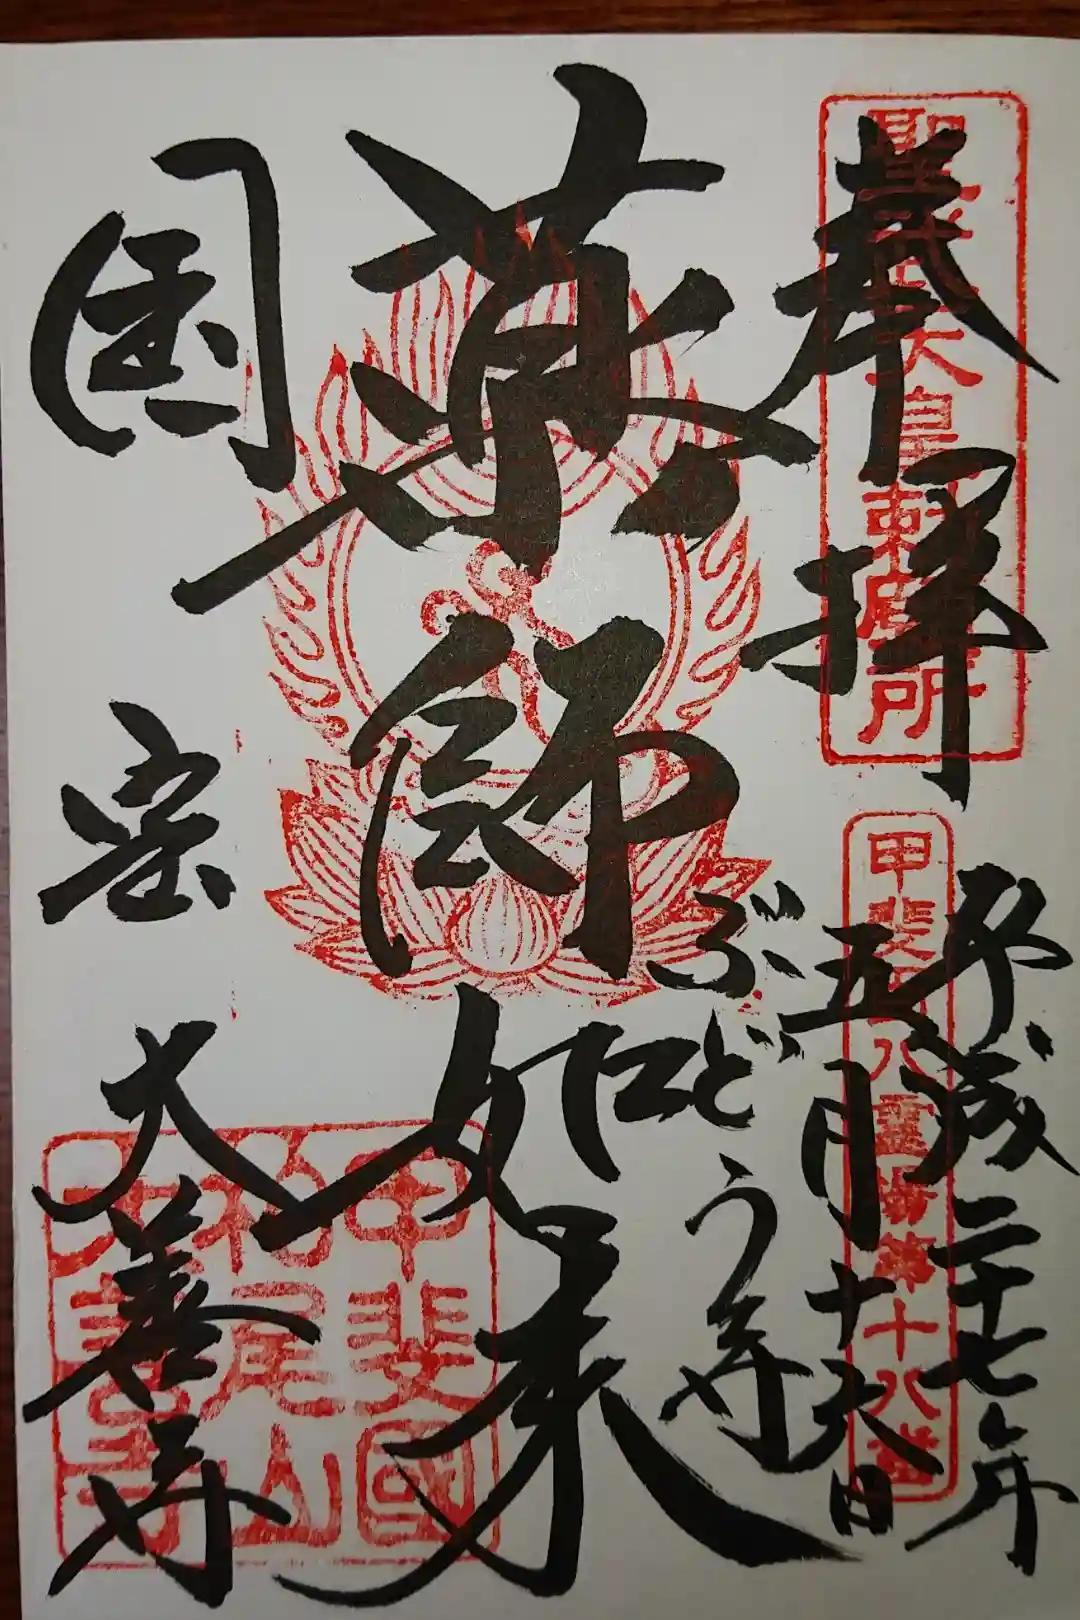 奉拝
聖武天皇勅願所
平成二十七年
五月十六日
甲斐百八霊場第十八番
ぶどう寺
薬師如来
国宝 大善寺
甲斐國
柏尾山
大善寺